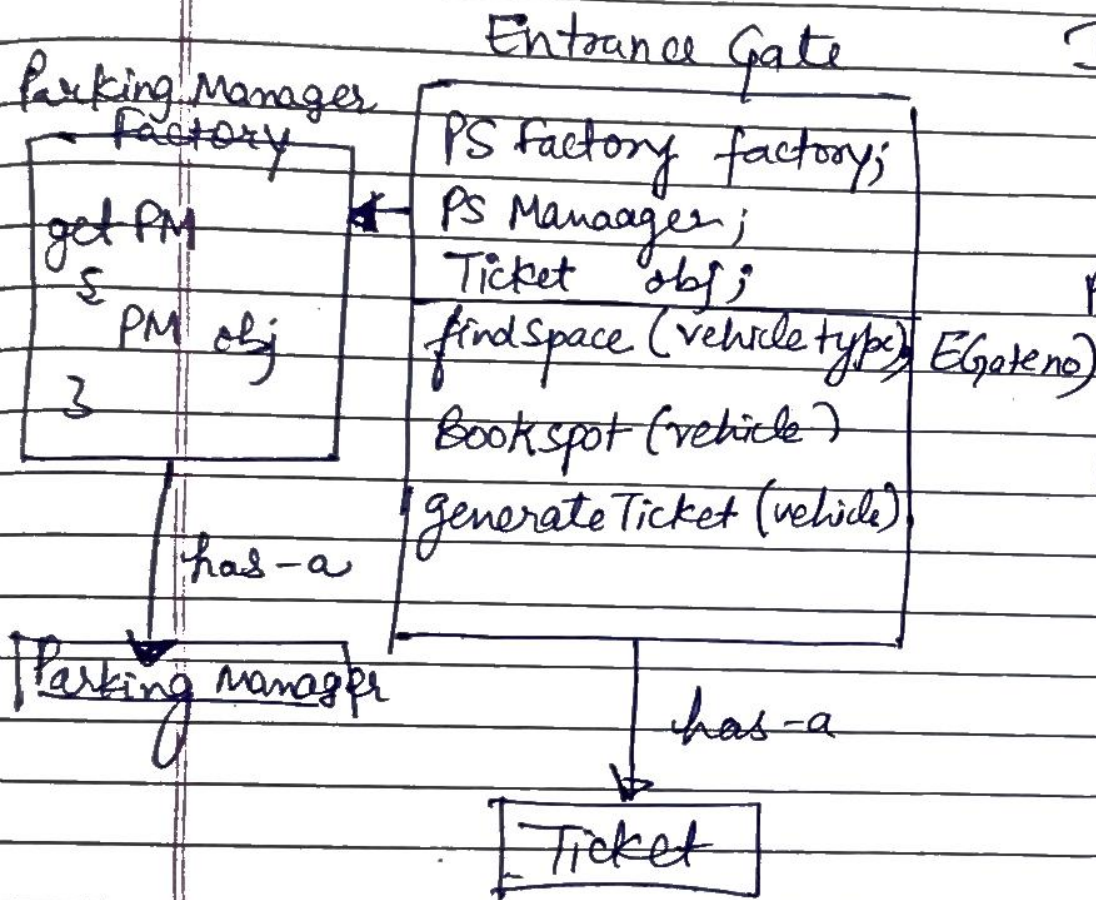 Entrance Gate
Parking Manager
Factory
PS Factory factory;
PS Manaager;
Ticket obj;
get PM
{
PM obj
}
findSpace (vehicle type), EGate no)
Book spot (vehicle)
generate Ticket (vehicle)
has-a
Parking Manager
has-a
Ticket